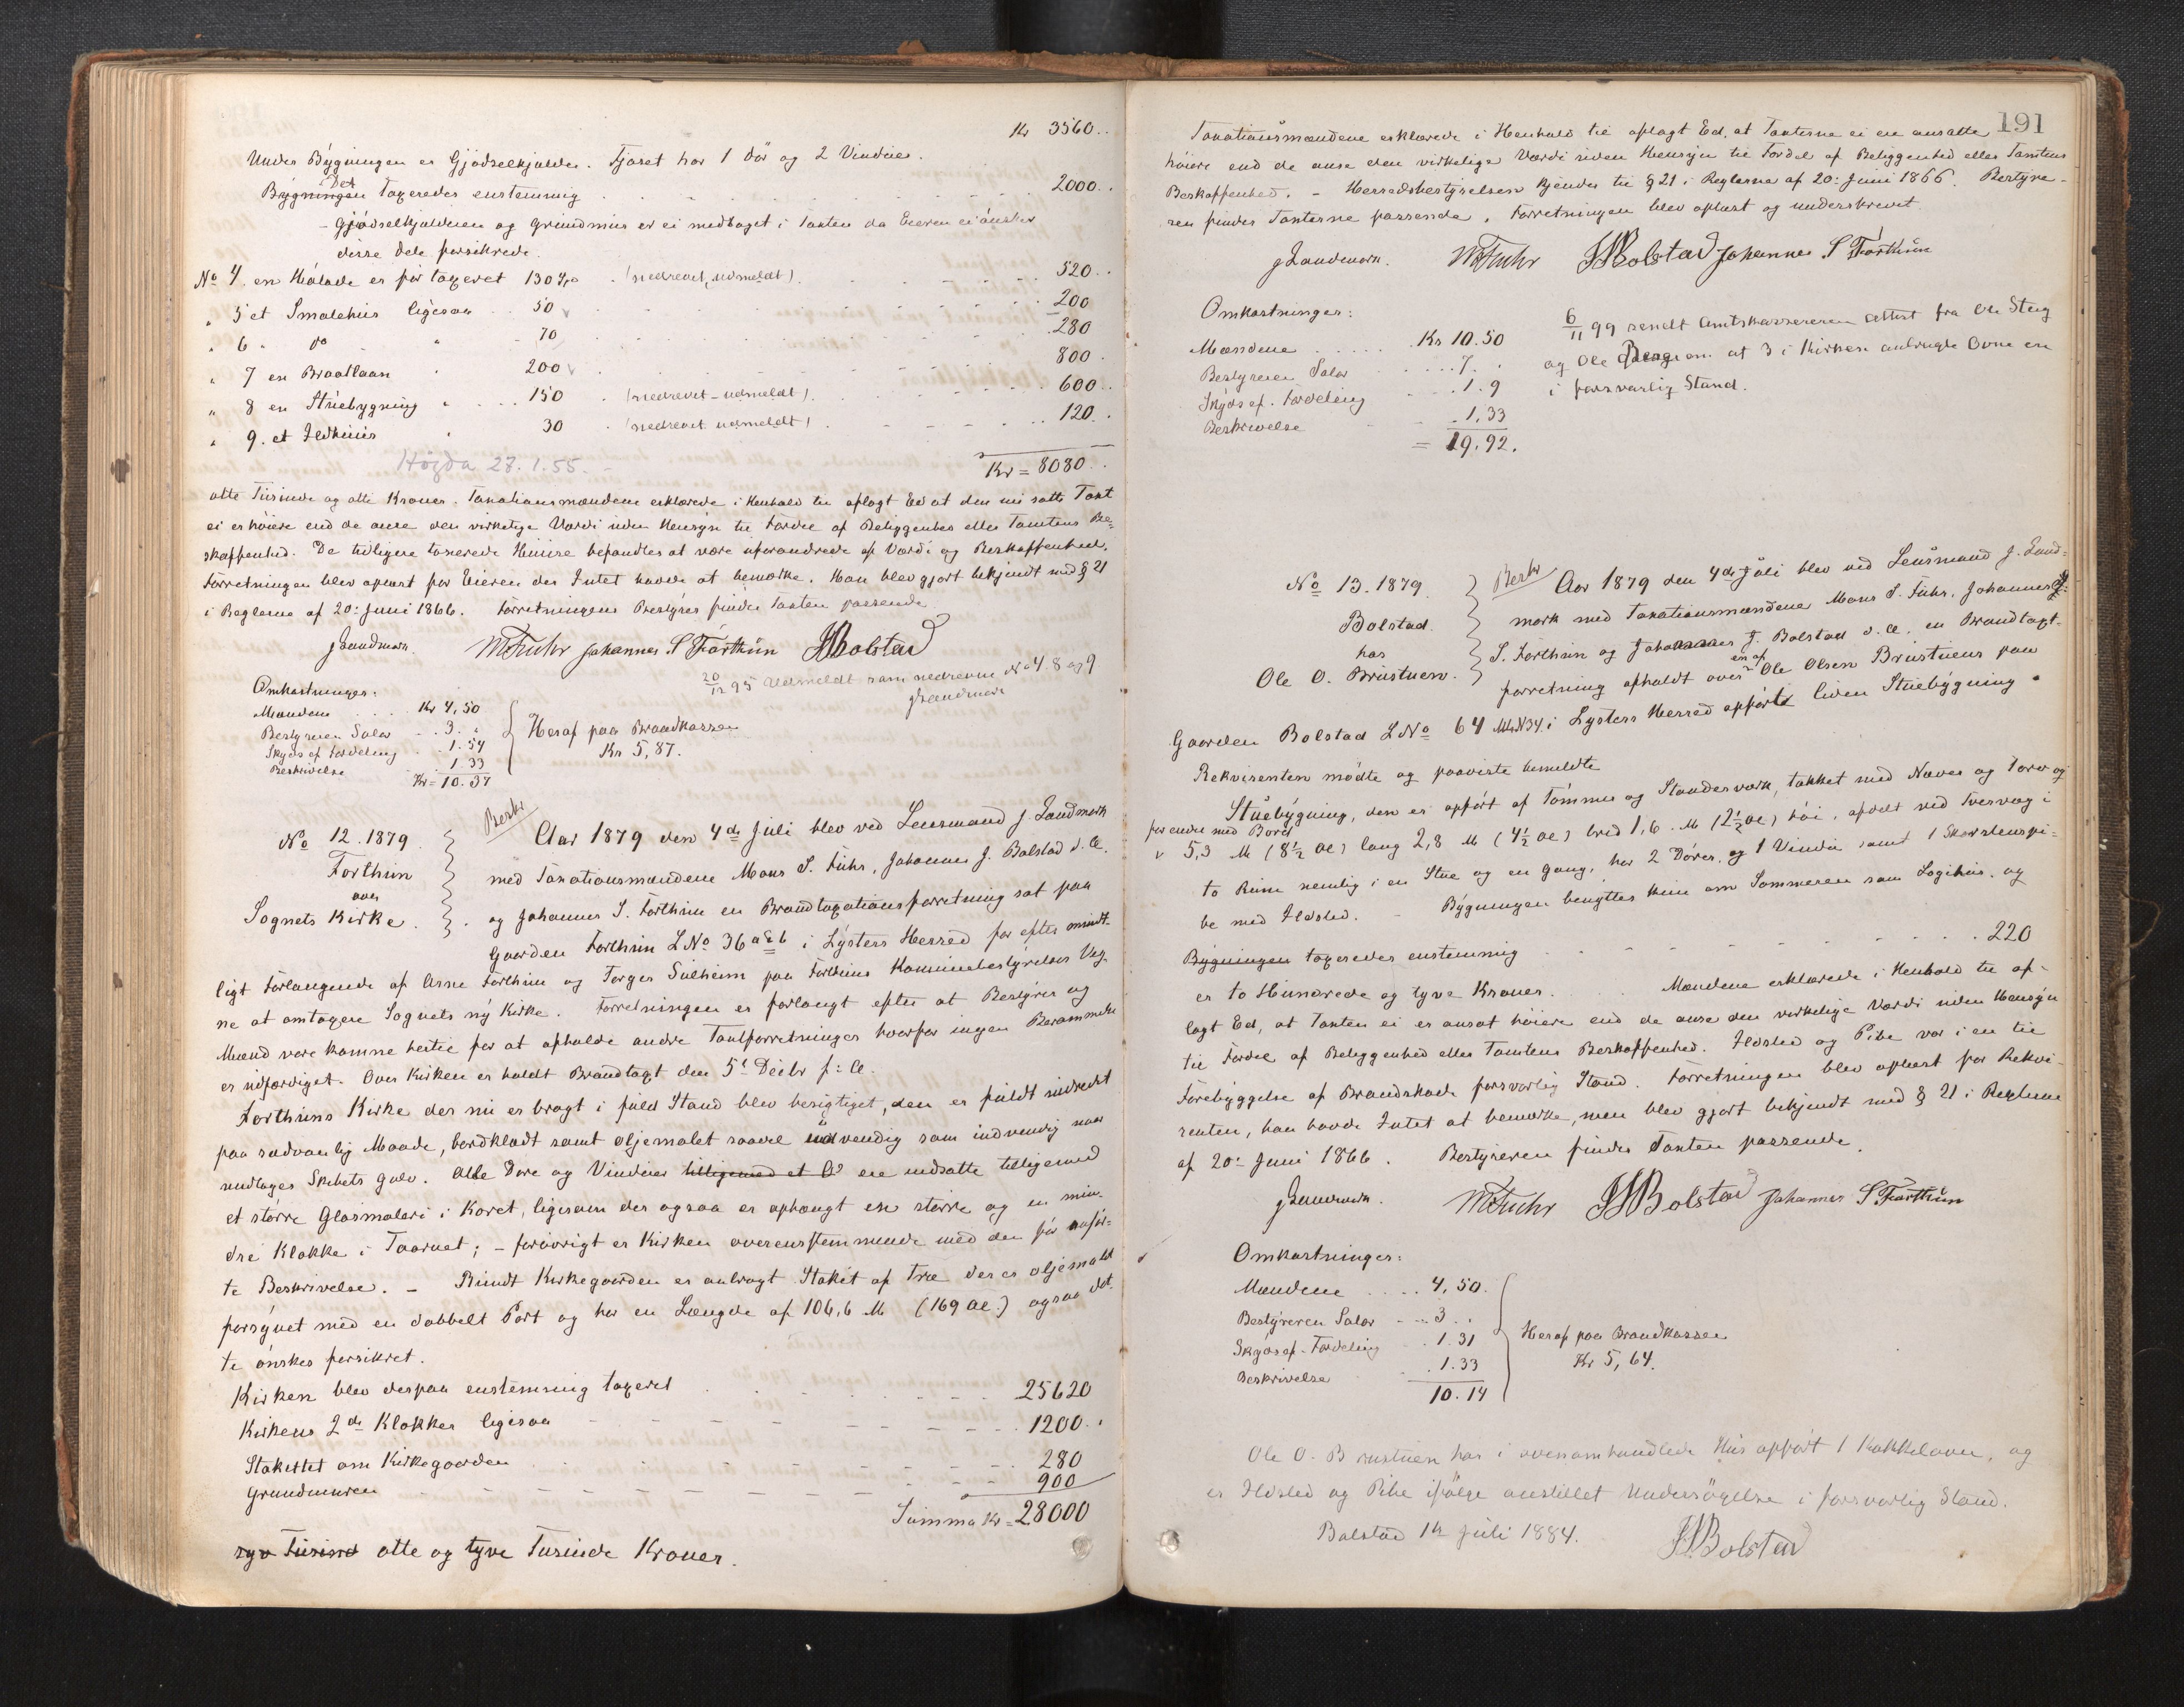 Kr 3560..
Under Bygningen er Gjødselkjelder. Fjøset har 1 Dør og 2 Vinduer.
Det
Bygningen taxeredes enstemmig 2000..
- Gjødselkjelderen og Grundmur er ei medtaget i Taxten da Eieren ei ønsker
disse Dele forsikrede.
No 4. en Høelade er før taxeret 130 Spd. (nedrevet, udmeldt) 520..
" 5 et Smalehus ligesaa 50 200
" 6 " do " 70 280
" 7 en Braatlaan " 200 800
" 8 en Stuebygning " 150 (nedrevet - udmeldt) 600..
" 9. et Ildhuus " 30 (nedrevet udmeldt) 120..
Høgda 28.1.55. Kr = 8080..
otte Tusinde og otti Kroner. Taxationsmændene erklærede i Henhold til aflagt Ed at den nu satte Taxt
ei er høiere end de anse den virkelige Værdi uden Hensyn til Fordel af Beliggenhed eller Tomtens Be-
skaffenhed. De tidligere taxerede Huuse befandtes at være uforandrede af Værdi og Beskaffenhed.
Forretningen blev oplæst for Eieren der Intet havde at bemærke. Han blev gjort bekjendt med § 21
i Reglerne af 20: Juni 1866. Forretningens Bestyrer finder Taxten passende
J Landmark. M S Fuhr Johannes S Forthun J J Bolstad
20/12 95 Udmeldt som nedrevne No 4. 8 og 9
J Landmark
Omkostninger:
Mændene Kr 4,50
Bestyreren Salær 3. "
Skyds ef. Fordeling 1.54
Beskrivelse 1.33
Kr = 10.37
Heraf paa Brandkassen
Kr 5,87.
No 12. 1879.
Forthun
over
Sognets Kirke.
Beskr
Aar 1879 den 4de Juli blev ved Lensmand J. Landmark
med Taxationsmændene Mons S. Fuhr, Johannes J. Bolstad d. Æ.
og Johannes S. Forthun en Brandtaxationsforretning sat paa
Gaarden Forthun LNo 36 a & b i Lysters Herred for efter mundt-
ligt Forlangende af Arne Forthun og Torger Sulheim paa Forthuns Kommunebestyrelses Veg-
ne at omtaxere Sognets ny Kirke. Forretningen er forlangt efter at Bestyrer og
Mænd vare komne hertil for at afholde andre Taxtforretninger hvorfor ingen Berammelse
er udfærdiget. Over Kirken er holdt Brandtaxt den 5te Decbr f: A.
Forthuns Kirke der nu er bragt i fuld Stand blev besigtiget, den er fuldt indredt
paa sædvanlig Maade, bordklædt samt oljemalet saavel udvendig som indvendig naar
undtages Skibets Gulv. Alle Døre og Vinduer tilligemed et ere indsatte tilligemed
et større Glasmaleri i Koret, ligesom der ogsaa er ophængt en større og en min-
dre Klokke i Taarnet; - forøvrigt er Kirken overensstemmende med den før anfør-
te Beskrivelse. - Rundt Kirkegaarden er anbragt Stakit af Træ der er oljemalet
forsynet med en dobbelt Port og har en Længde af 106,6 M (169 Al.) ogsaa det-
te ønskes forsikret.
Kirken blev derpaa enstemmig taxeret 25620
Kirkens 2de Klokker ligesaa 1200..
Stakittet om Kirkegaarden 280
Grundmuren 900
Summa Kr = 28000
syv Tusind otte og tyve Tusinde Kroner.
191
Taxationsmændene erklærede i Henhold til aflagt Ed, at Taxterne ei ere ansatte
høiere end de anse den virkelige Værdi uden Hensyn til Fordel af Beliggenhed eller Tomtens
Beskaffenhed. - Herredsbestyrelsen kjender til § 21 i Reglerne af 20: Juni 1866. Bestyre-
ren finder Taxterne passende. Forretningen blev oplæst og underskrevet.
J Landmark. M S Fuhr J J Bolstad Johannes S Forthun
Omkostninger:
Mændene Kr 10.50
Bestyreren Salær 7. "
Skyds ef. Fordeling 1.9
Beskrivelse 1.33
= 19.92.
6/11 99 sendt Amtskassereren attest fra Ole Steig
og Ole Berge om at 3 i Kirken anbragte Ovne er
i forsvarlig Stand.
No 13. 1879.
Bolstad
hos
Ole O. Brustuen.
Beskr
Aar 1879 den 4de Juli blev ved Lensmand J. Land-
mark med Taxationsmændene Mons S. Fuhr, Johannes
S. Forthun og Johannes J. Bolstad d. Æ. en Brandtaxt-
forretning afholdt over en af Ole Olsen Brustuens paa
Gaarden Bolstad LNo 64 MNo 34 i Lysters Herred opført liden Stuebygning.
Rekvirenten mødte og paaviste bemeldte
Stuebygning, den er opført af Tømmer og Standerværk, takket med Næver og Torv og
for enden med Bord
5,3 M (8 1/2 Al) lang 2,8 M (4 1/2 Al) bred 1,6. M (2 1/2 Al) høi, afdelt ved Tversvæg i
to Rum nemlig i en Stue og en Gang, har 2 Døre, og 1 Vindu samt 1 Skorstenspi-
be med Ildsted. - Bygningen benyttes kun om Sommeren som Logihus, og
Bygningen taxeredes enstemmig 220
er to Hundrede og tyve Kroner. Mændene erklærede i Henhold til af-
lagt Ed, at Taxten ei er ansat høiere end de anse den virkelige Værdi uden Hensyn
til Fordel af Beliggenhed eller Tomtens Beskaffenhed. Ildsted og Pibe var i en til
Forebyggelse af Brandskade forsvarlig Stand. Forretningen blev oplæst for Rekvi-
renten, han havde Intet at bemærke, men blev gjort bekjendt med § 21 i Reglerne
af 20: Juni 1866. Bestyreren finder Taxten passende.
J Landmark. M S Fuhr J J Bolstad Johannes S Forthun
Omkostninger:
Mændene 4,50.
Bestyreren Salær 3. "
Skyds ef. Fordeling 1.31
Beskrivelse 1.33
10.14
Heraf paa Brandkassen
Kr 5,64.
Ole O. Brustuen har i ovenomhandlede Hus opført 1 Kakkelovn, og
er Ildsted og Pibe ifølge anstillet Undersøgelse i forsvarlig Stand.
Bolstad 14 Juli 1884. J J Bolstad